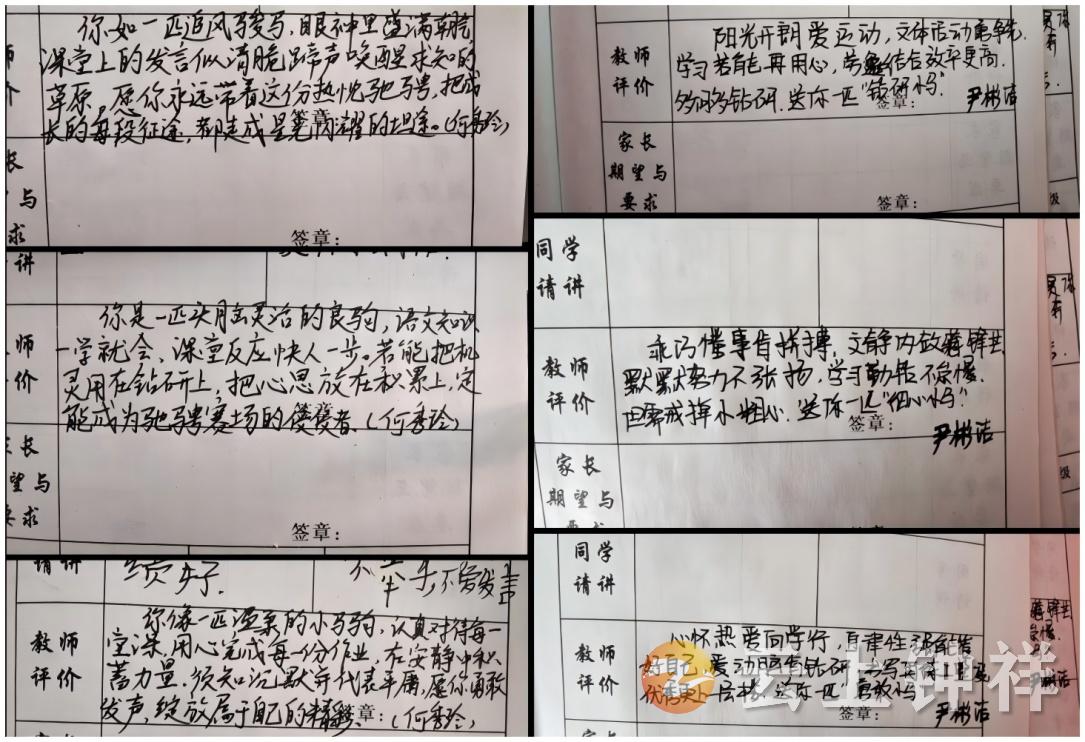 你如一匹追风骏马,眼神里盛满朝气,
课堂上的发言似清脆蹄声唤醒求知的
草原,愿你永远带着这份热忱驰骋,把成
长的每段征途,都走成星光闪耀的坦途。(何秀玲)
签章:
长
望与
要求
签章:
请讲
教师
评价
你是一匹头脑灵活的良驹,语文知识
一学就会,课堂反应快人一步。若能把机
灵用在钻研上,把心思放在积累上,定
能成为驰骋赛场的佼佼者。(何秀玲)
签章:
家长
期望与
要求
签章:
请讲
绩好.
不举手,不爱发言
教师
评价
你像一匹温柔的小马驹,认真对待每一
堂课,用心完成每一份作业,在安静中积
蓄力量,须知沉默并不代表平庸,愿你勇敢
发声,绽放属于自己的精彩。(何秀玲)
签章:
教师
评价
阳光开朗爱运动,文体活动勇争先.
学习若能再用心,劳逸结合效率更高.
多问多钻研.送你一匹“钻研马”.
尹彬洁
家长
期望与
要求
签章:
同学
请讲
教师
评价
乖巧懂事肯拼搏,文静内敛
默默努力不张扬,学习勤恳不怠慢.
但需戒掉小粗心.送你一匹“细心马”
签章:
尹彬洁
家长
期望与
要求
签章:
同学
请讲
教师
评价
心怀热爱向学行,自律性强能管
好自己,爱动脑肯钻研
优秀更上一层楼,送你一匹勇敢马
签章:
尹彬洁
云上钟祥